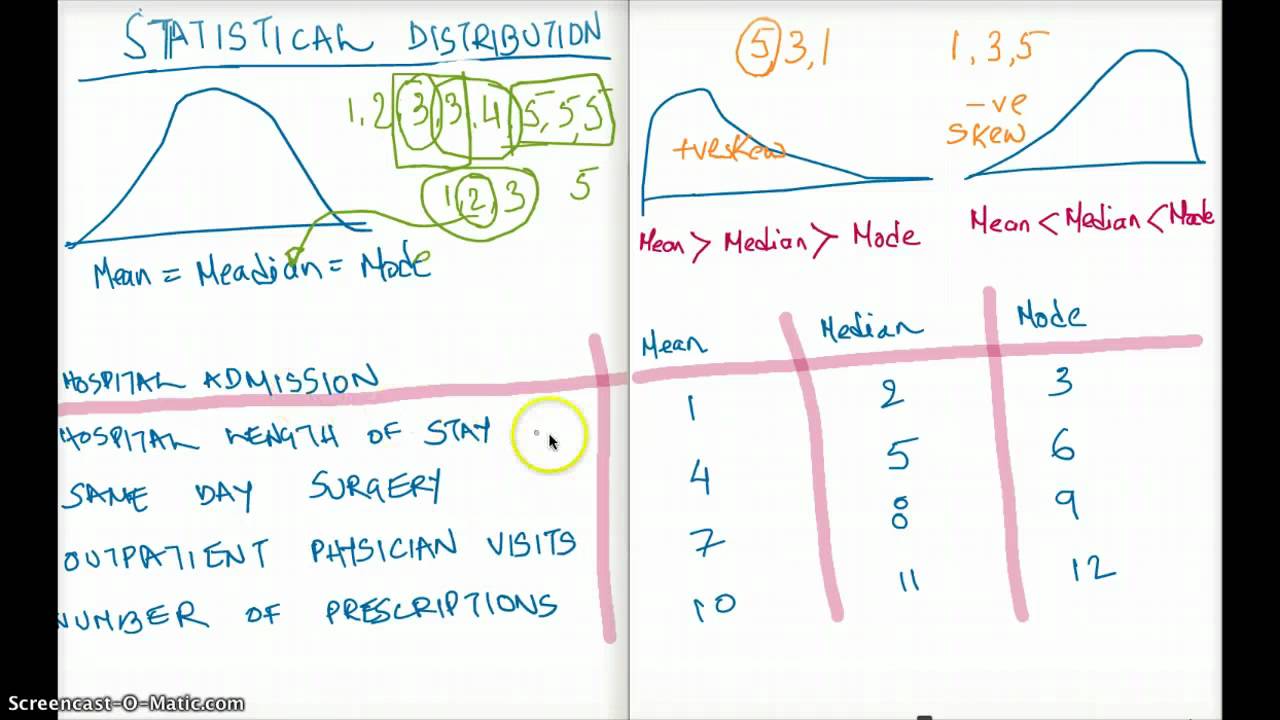 STATISTICAL DISTRIBUTION
1, 2, 3, 3, 4, 5, 5, 5
1, 2, 3
5
Mean = Meadian = Mode
5, 3, 1
+ve skew
Mean > Median > Mode
1, 3, 5
-ve
skew
Mean < Median < Mode
Mean Median Mode
HOSPITAL ADMISSION
1 2 3
HOSPITAL LENGTH OF STAY
4 5 6
SAME DAY SURGERY
7 8 9
OUTPATIENT PHYSICIAN VISITS
10 11 12
NUMBER OF PRESCRIPTIONS
Screencast-O-Matic.com